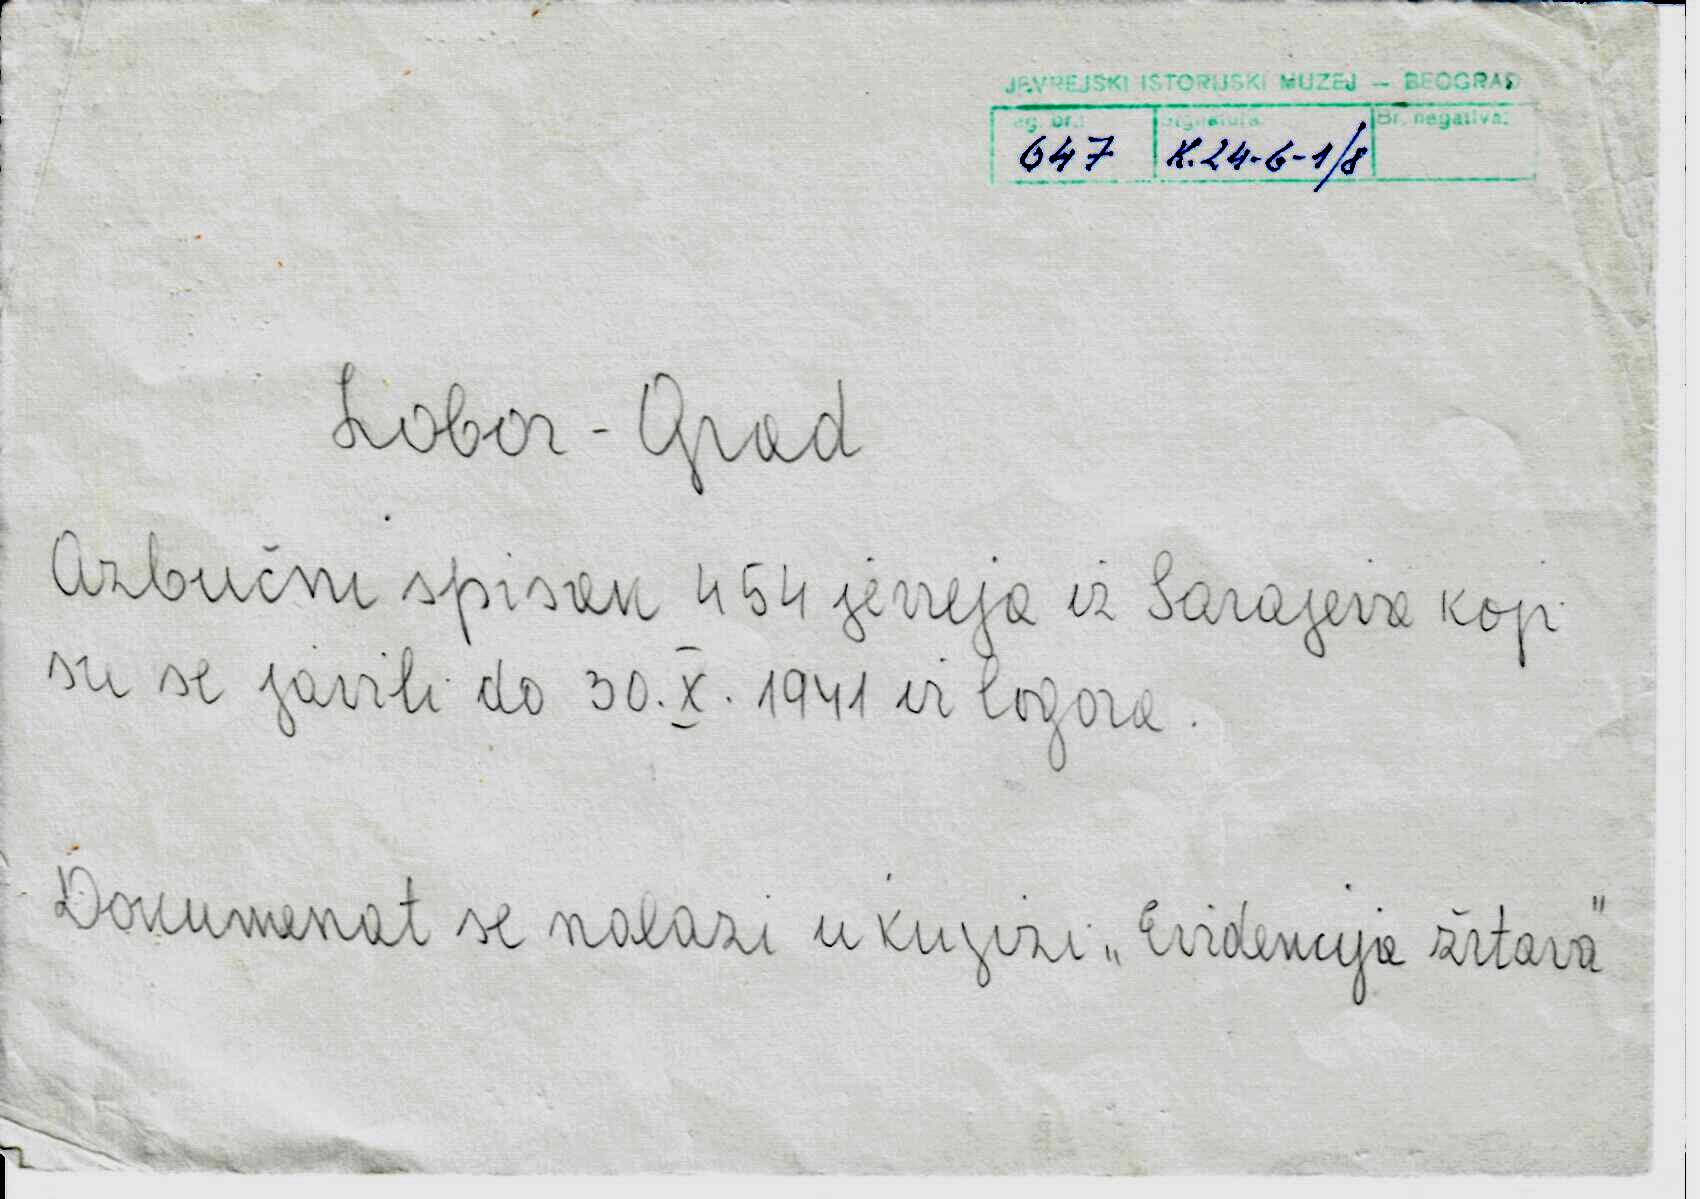 JEVREJSKI ISTORIJSKI MUZEJ — BEOGRAD
eg. br.: Signatura: Br. negativa:
647 K.24-6-1/8
Lobor - Grad
Azbučni spisak 454 jevreja iz Sarajeva koji
su se javili do 30. X. 1941 iz logora.
Dokumenat se nalazi u knjizi „Evidencija žrtava"